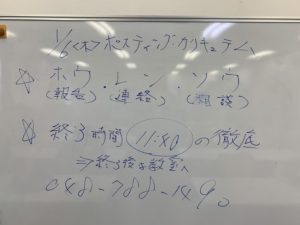 1/6<木>ポスティングカリキュラム
☆ ホウ・レン・ソウ
(報告)・(連絡)・(相談)
☆ 終了時間 11:40 の徹底
⇒終了後は教室へ
048-788-1490